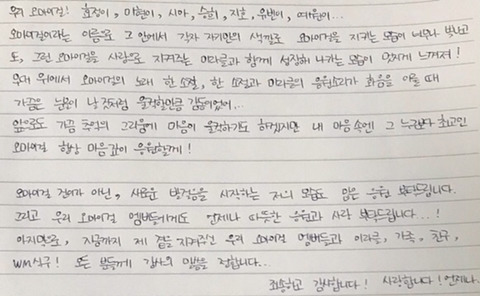 우리 오마이걸! 효정이, 미현이, 시아, 승희, 지호, 유빈이, 아린이...
오마이걸이라는 이름으로 그 안에서 각자 자기만의 색깔로 오마이걸을 지키는 모습이 너무나 벅차고
도, 그런 오마이걸을 사랑으로 지켜주는 미라클과 함께 성장해 나가는 모습이 멋지게 느껴져!
무대 위에서 오마이걸의 노래 한 소절, 한 소절과 미라클의 응원소리가 화음을 이룰 때
가끔은 눈물이 날 것처럼 울컥할만큼 감동이었어...
앞으로도 가끔 추억의 그리움에 마음이 울컥하기도 하겠지만 내 마음속엔 그 누구보다 최고인
오마이걸 항상 마음 깊이 응원할게!
오마이걸 진이가 아닌, 새로운 발걸음을 시작하는 저의 모습도 많은 응원 부탁드립니다.
그리고 우리 오마이걸 멤버들에게도 언제나 따뜻한 응원과 사랑 부탁드립니다...!
마지막으로, 지금까지 제 곁을 지켜주신 우리 오마이걸 멤버들과 미라클, 가족, 친구,
WM식구! 모든 분들께 감사의 말씀을 전합니다...
죄송하고 감사합니다! 사랑합니다! 언제나.